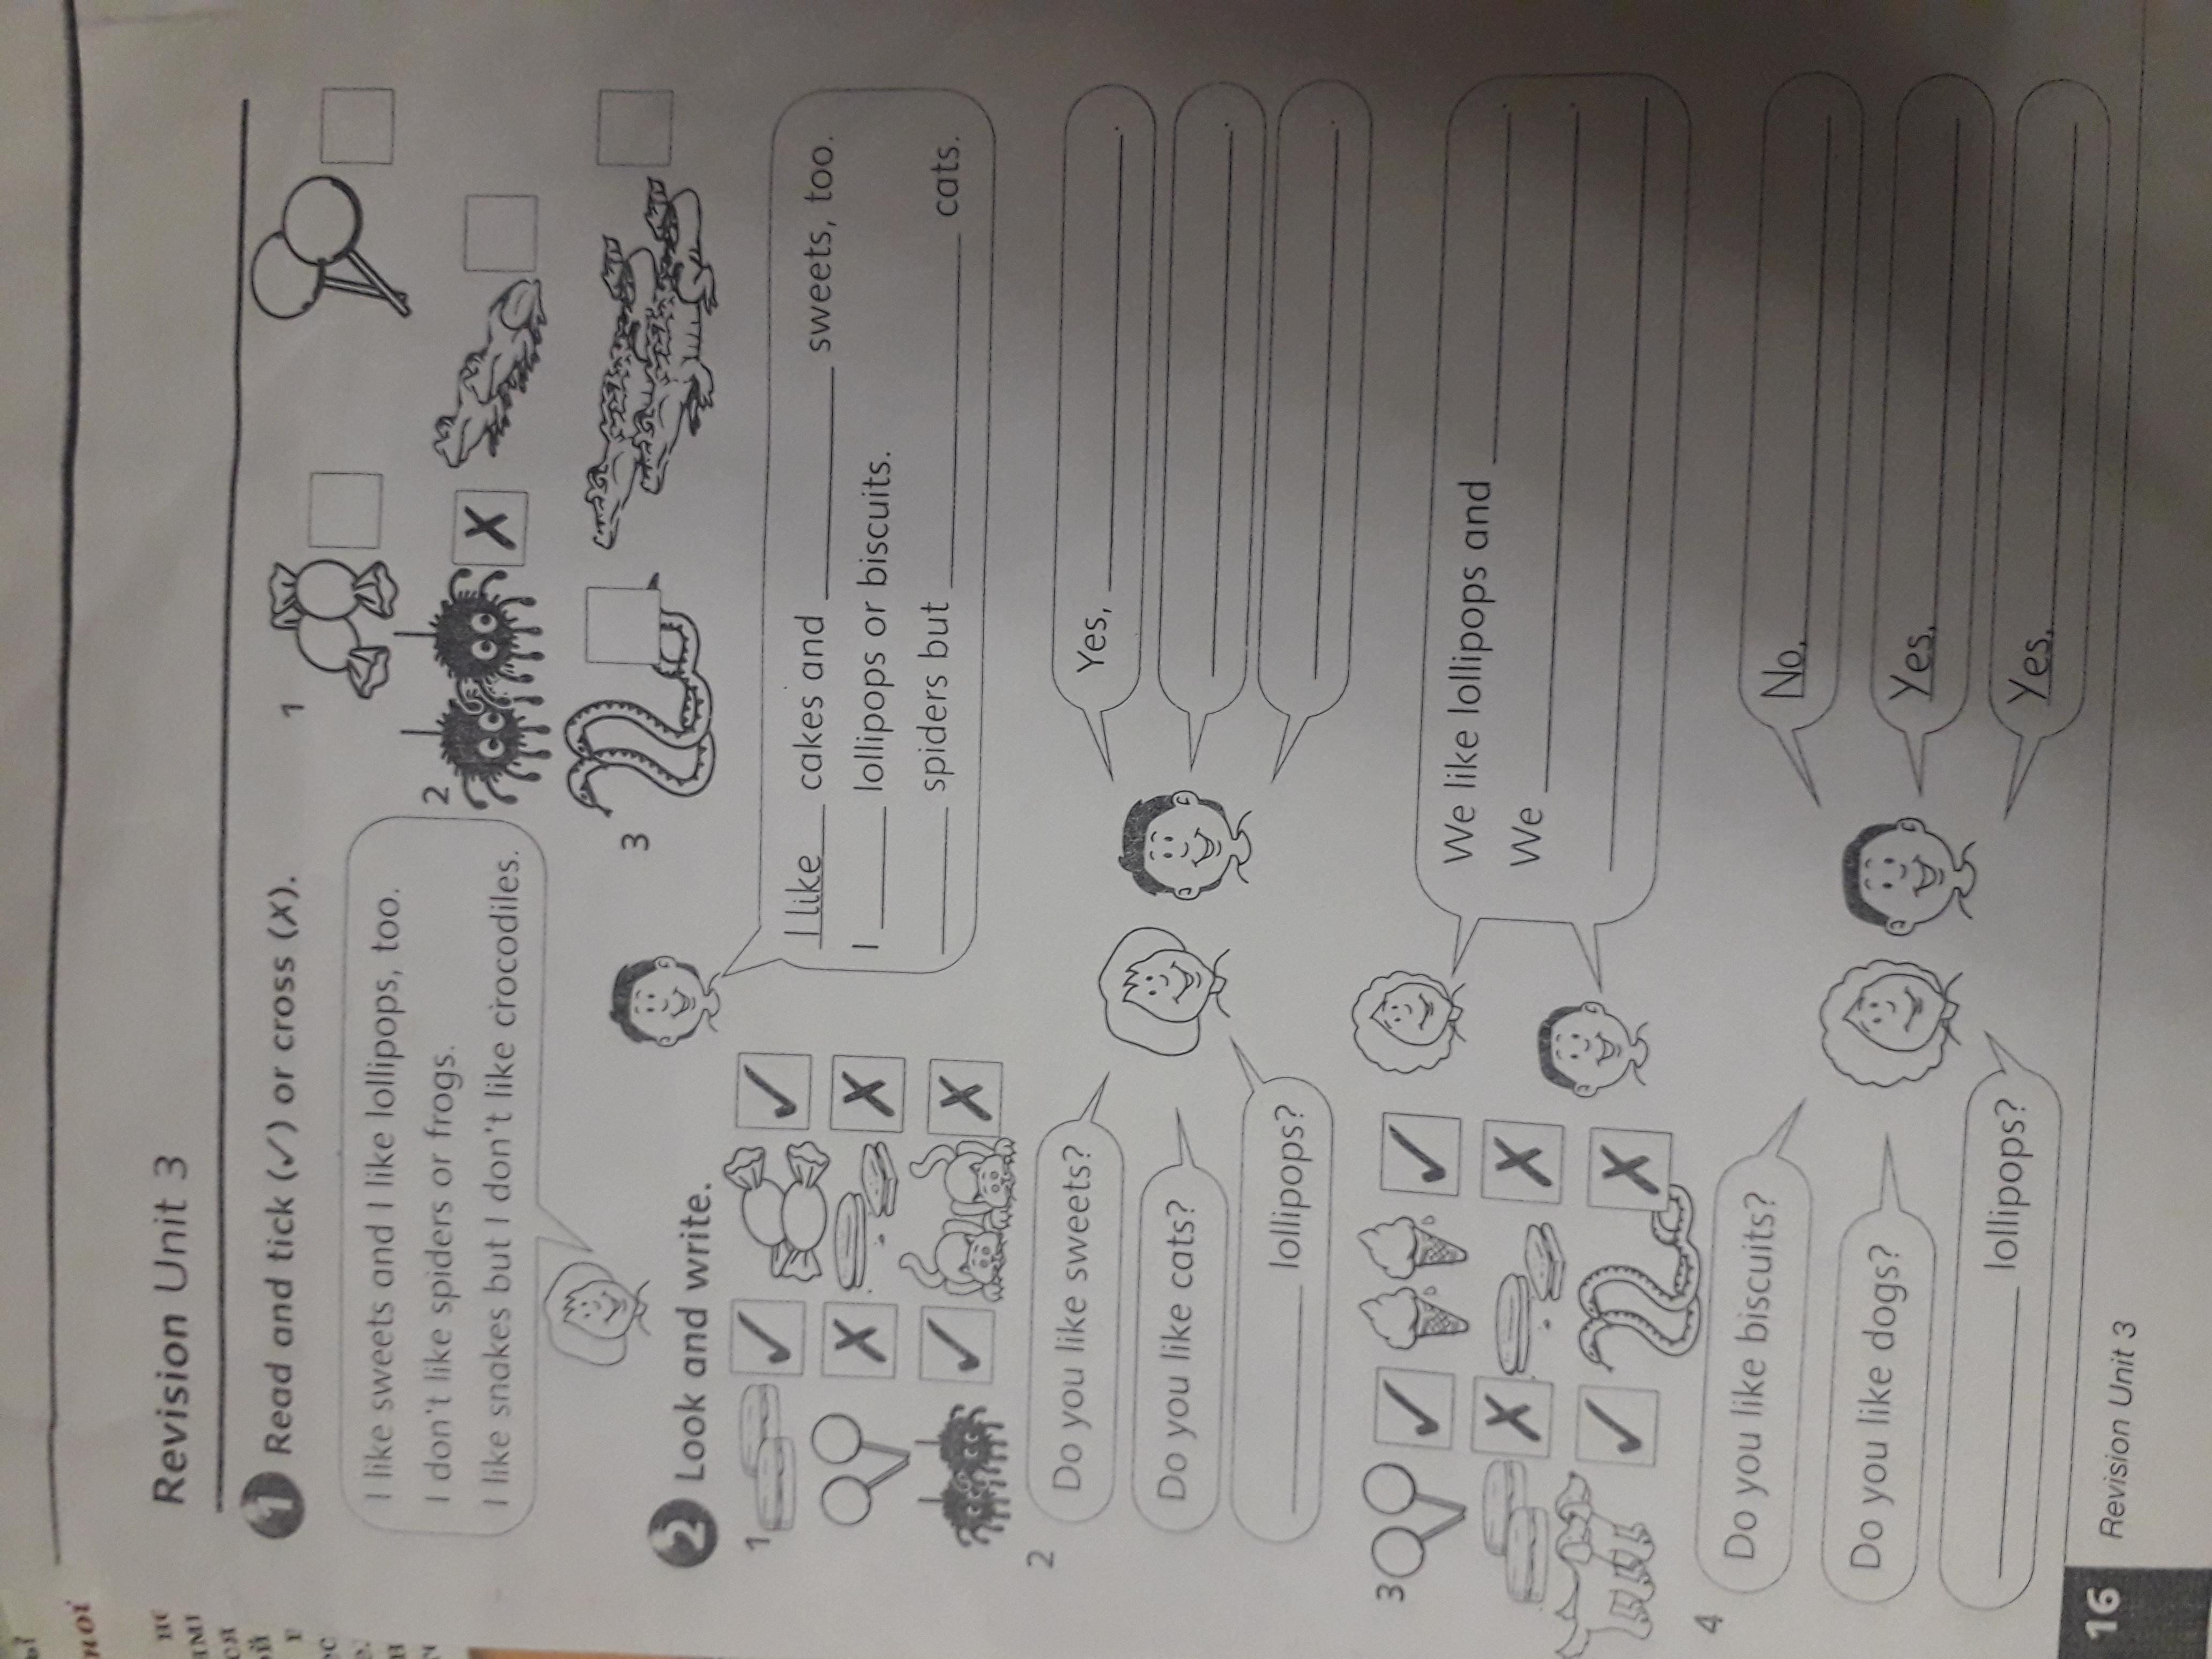 Revision Unit 3
1 Read and tick (✓) or cross (✗).
I like sweets and I like lollipops, too.
I don't like spiders or frogs.
I like snakes but I don't like crocodiles.
1
2
✗
3
2 Look and write.
1
✓ ✓
✗ ✗
✓ ✗
I like cakes and ________ sweets, too.
I ________ lollipops or biscuits.
________ spiders but ________ cats.
2
Do you like sweets?
Yes, ________.
Do you like cats?
________.
________ lollipops?
________.
3
✓ ✓
✗ ✗
✓ ✗
We like lollipops and ________.
We ________.
________
4
Do you like biscuits?
No, ________.
Do you like dogs?
Yes, ________.
________ lollipops?
Yes, ________.
16 Revision Unit 3